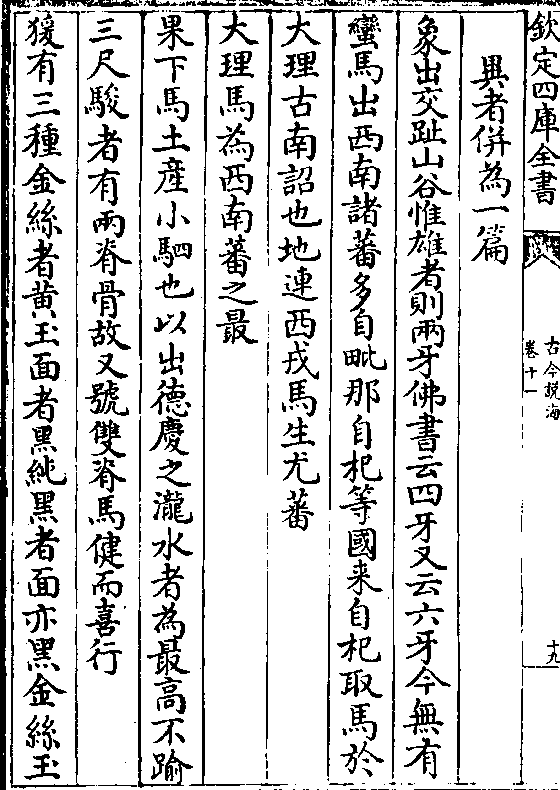 欽定四庫全書
古今說海
卷十一
十九
異者併為一篇
象出交趾山谷惟雄者則兩牙佛書云四牙又云六牙今無有
蠻馬出西南諸蕃多自毗那自杞等國来自杞取馬於
大理古南詔也地連西戎馬生尤蕃
大理馬為西南蕃之最
果下馬土產小駟也以出德慶之瀧水者為最高不踰
三尺駿者有兩脊骨故又號雙脊馬健而喜行
猨有三種金絲者黄玉面者黑純黑者面亦黑金絲玉